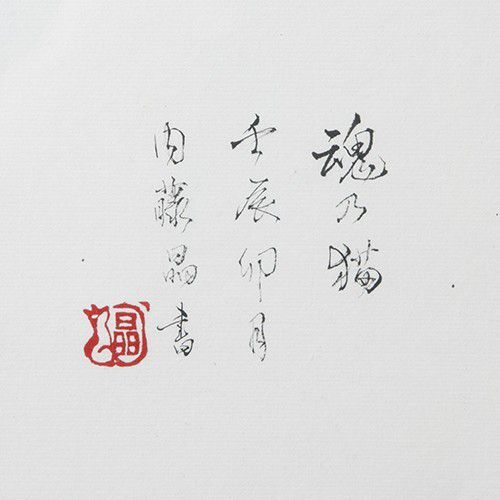 魂乃猫
壬辰卯月
内藤晶書
晶